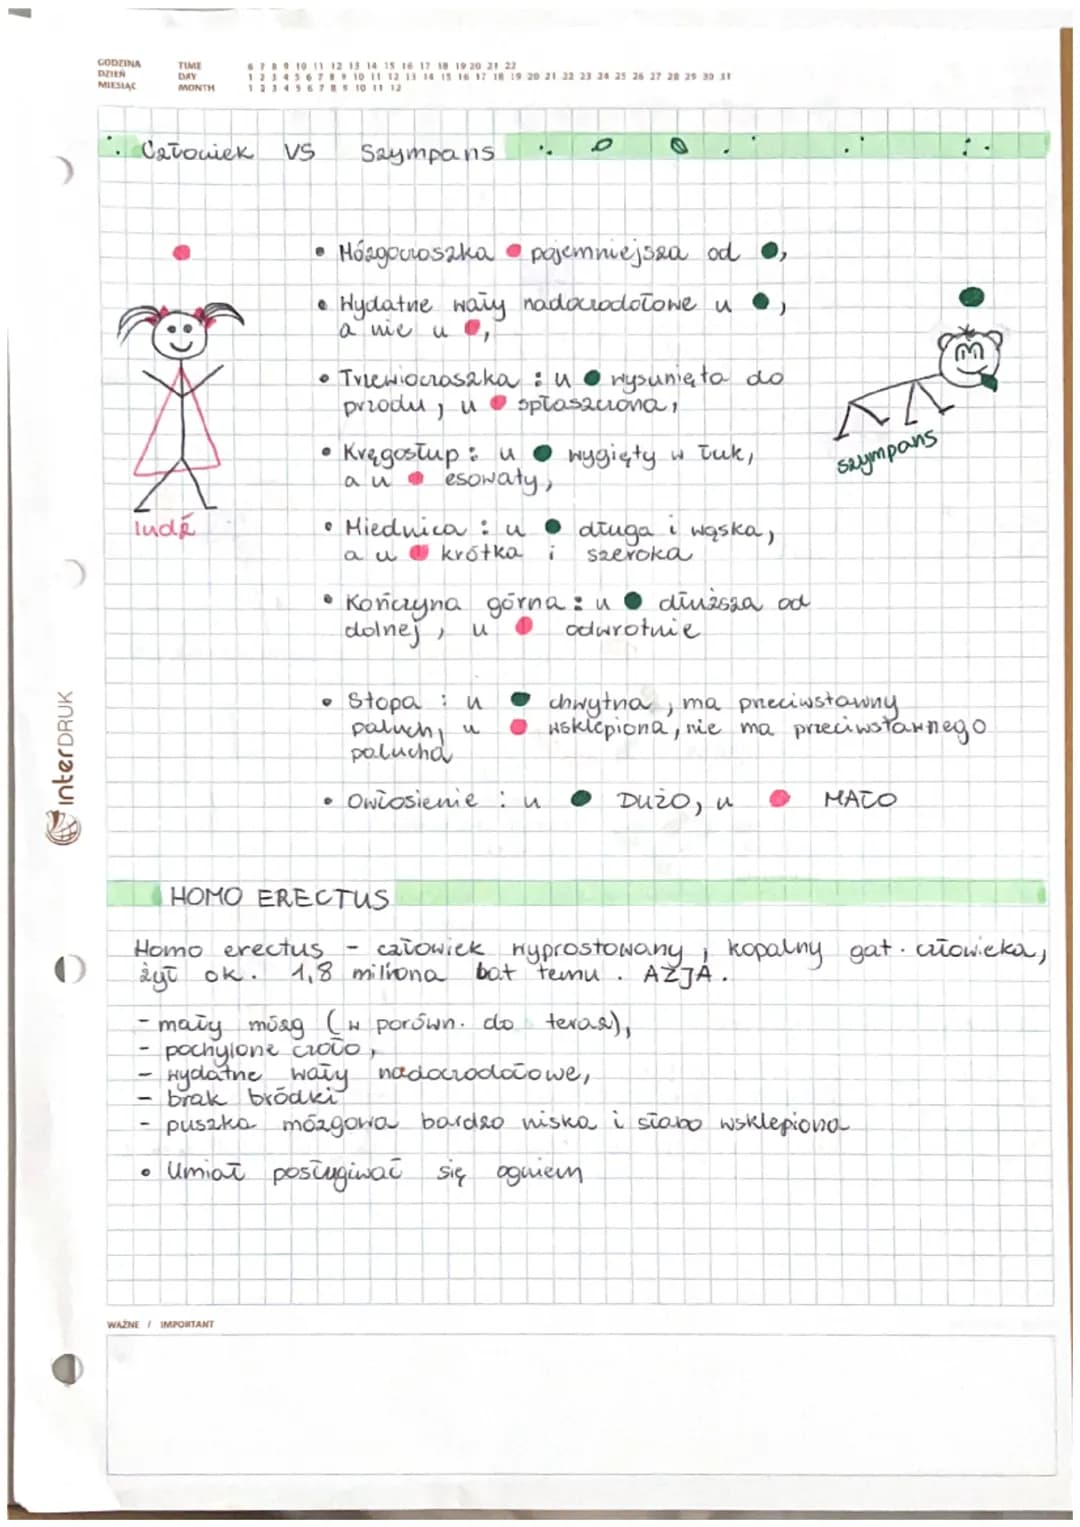 GODZINA TIME 6 7 8 9 10 11 12 13 14 15 16 17 18 19 20 21 22
DZIEŃ DAY 1 2 3 4 5 6 7 8 9 10 11 12 13 14 15 16 17 18 19 20 21 22 23 24 25 26 27 28 29 30 31
MIESIĄC MONTH 1 2 3 4 5 6 7 8 9 10 11 12
Człowiek VS Szympans
• Mózgoczaszka pojemniejsza od ,
• Wydatne wały nadoczodołowe u ,
a nie u ,
• Trzewioczaszka : u wysunięta do
przodu, u spłaszczona,
• Kręgosłup : u wygięty w łuk,
a u esowaty,
• Miednica : u długa i wąska,
a u krótka i szeroka
• Kończyna górna : u dłuższa od
dolnej, u odwrotnie
• Stopa : u chwytna, ma przeciwstawny
paluch, u wsklepiona, nie ma przeciwstawnego
palucha
• Owłosienie : u DUŻO, u MAŁO
ludź
szympans
interDRUK
HOMO ERECTUS
Homo erectus - człowiek wyprostowany, kopalny gat. człowieka,
żył ok. 1,8 miliona bat temu. AZJA.
- mały mózg (w porówn. do teraz),
- pochylone czoło,
- wydatne wały nadoczodołowe,
- brak bródki
- puszka mózgowa bardzo niska i słabo wsklepiona
• Umiał posługiwać się ogniem
WAŻNE / IMPORTANT